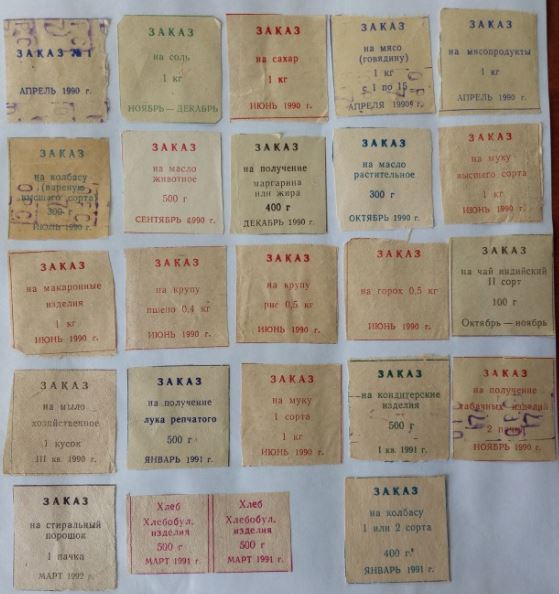 ЗАКАЗ № 1
АПРЕЛЬ 1990 г.
ЗАКАЗ
на соль
1 кг
НОЯБРЬ — ДЕКАБРЬ
ЗАКАЗ
на сахар
1 кг
ИЮНЬ 1990 г.
ЗАКАЗ
на мясо
(говядину)
1 кг
с 1 по 15
АПРЕЛЯ 1990 г.
ЗАКАЗ
на мясопродукты
1 кг
АПРЕЛЬ 1990 г.
ЗАКАЗ
на колбасу
(вареную
высшего сорта)
300 г
ИЮНЬ 1990 г.
ЗАКАЗ
на масло
животное
500 г
СЕНТЯБРЬ 1990 г.
ЗАКАЗ
на получение
маргарина
или жира
400 г
ДЕКАБРЬ 1990 г.
ЗАКАЗ
на масло
растительное
300 г
ОКТЯБРЬ 1990 г.
ЗАКАЗ
на муку
высшего сорта
1 кг
ИЮНЬ 1990 г.
ЗАКАЗ
на макаронные
изделия
1 кг
ИЮНЬ 1990 г.
ЗАКАЗ
на крупу
пшено 0,4 кг
ИЮНЬ 1990 г.
ЗАКАЗ
на крупу
рис 0,5 кг
ИЮНЬ 1990 г.
ЗАКАЗ
на горох 0,5 кг
ИЮНЬ 1990 г.
ЗАКАЗ
на чай индийский
II сорт
100 г
Октябрь — ноябрь
ЗАКАЗ
на мыло
хозяйственное
1 кусок
III кв. 1990 г.
ЗАКАЗ
на получение
лука репчатого
500 г
ЯНВАРЬ 1991 г.
ЗАКАЗ
на муку
1 сорта
1 кг
ИЮНЬ 1990 г.
ЗАКАЗ
на кондитерские
изделия
500 г
1 кв. 1991 г.
ЗАКАЗ
на получение
табачных изделий
2 пачки
НОЯБРЬ 1990 г.
ЗАКАЗ
на стиральный
порошок
1 пачка
МАРТ 1992 г.
Хлеб
Хлебобул.
изделия
500 г
МАРТ 1991 г.
Хлеб
Хлебобул.
изделия
500 г
МАРТ 1991 г.
ЗАКАЗ
на колбасу
1 или 2 сорта
400 г.
ЯНВАРЬ 1991 г.